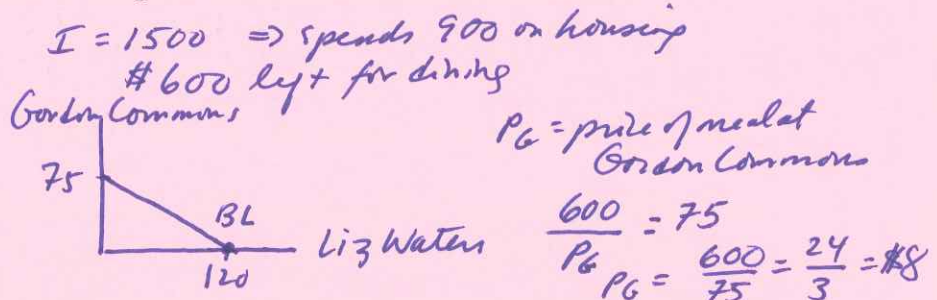 I = 1500 => spends 900 on housing
$600 left for dining
Gordon Commons
75
BL
120
Liz Waters
PG = price of meal at
Gordon Commons
600/PG = 75
PG = 600/75 = 24/3 = $8